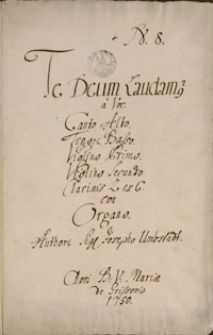 N. 8.
Te Deum Laudam9
à Voc:
Canto Alto.
Tenore Basso.
Violino Primo.
Violino Secundo
Clarinis 2 ex C
con
Organo.
Authore Sig. Josepho Umbstadt.
Chori B. V. Mariæ
de
1750.